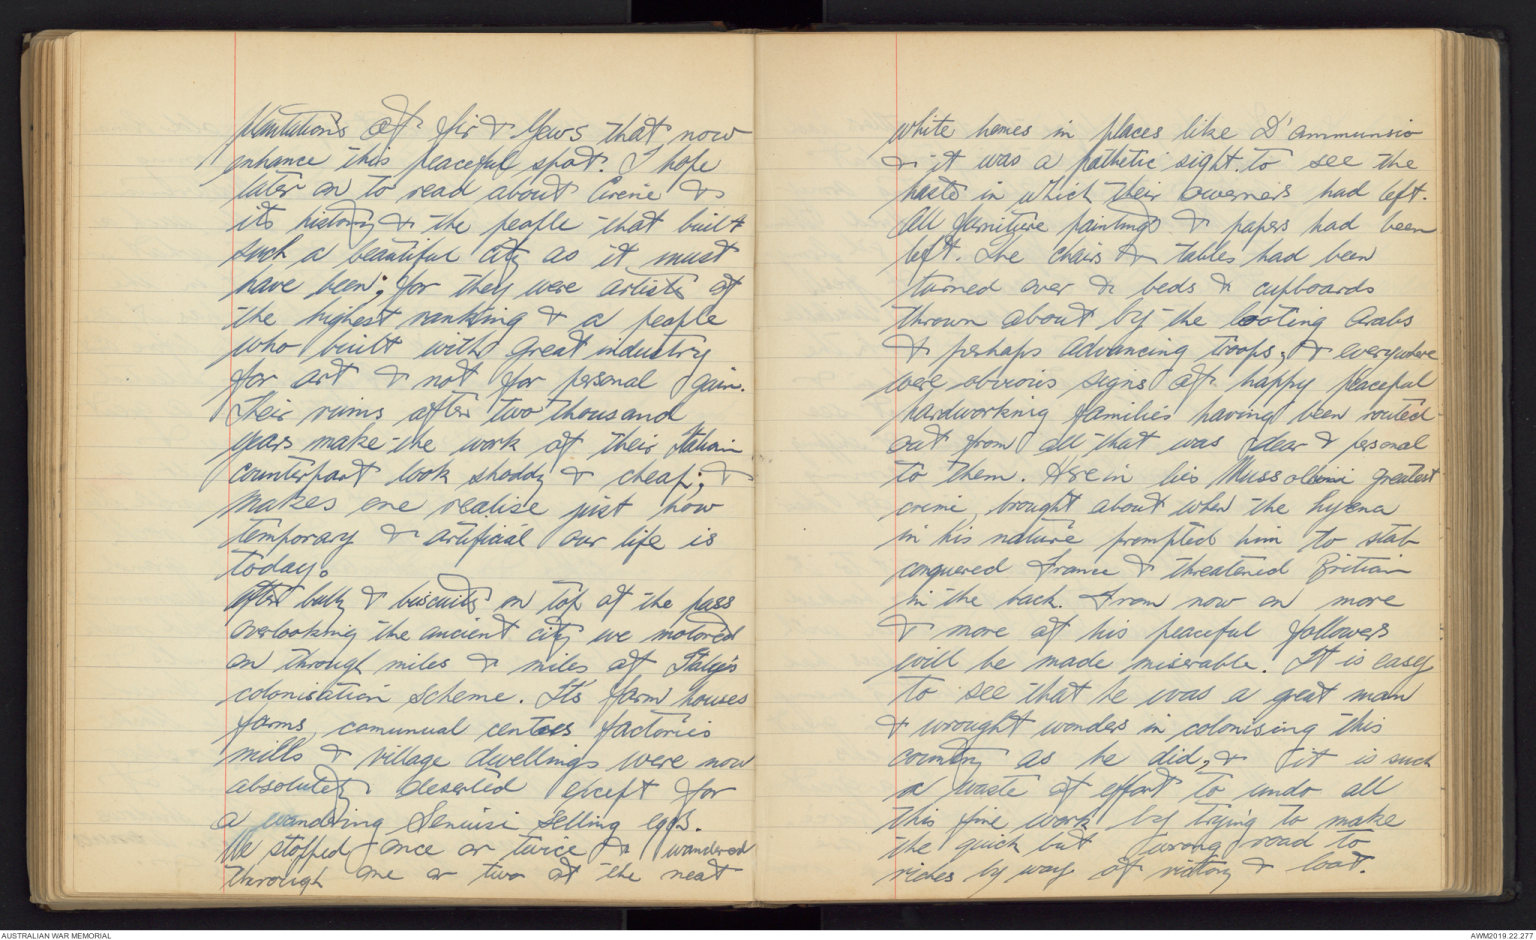 plantations of fir & Yews that now
enhance this peaceful spot. I hope
later on to read about Cirene &
its history & the people that built
such a beautiful city as it must
have been; for they were artists of
the highest ranking & a people
who built with great industry
for art & not for personal gain.
Their ruins after two thousand
years make the work of their Italian
counterpart look shoddy & cheap; &
makes one realise just how
temporary & artificial our life is
today.
After bully & biscuits on top of the pass
overlooking the ancient city we motored
on through miles & miles of Italy's
colonisation scheme. It's farm houses
farms, comunual centres factories
mills & village dwellings were now
absolutely deserted except for
a wandering Senuisi selling eggs.
We stopped once or twice & wandered
through one or two of the neat
white homes in places like D'ammunsio
& it was a pathetic sight to see the
haste in which their owerners had left.
All furniture paintings & papers had been
left. The chairs & tables had been
turned over & beds & cupboards
thrown about by the looting Arabs
& perhaps advancing troops, & everywhere
were obvious signs of happy peaceful
hardworking families having been routed
out from all that was dear & personal
to them. Herein lies Mussolini greatest
crime, brought about when the hyena
in his nature prompted him to stab
conquered France & threatened Britian
in the back. From now on more
& more of his peaceful followers
will be made miserable. It is easy
to see that he was a great man
& wrought wonders in colonising this
country as he did, & it is such
a waste of effort to undo all
this fine work by trying to make
the quick but wrong road to
riches by way of victory & loot.
AUSTRALIAN WAR MEMORIAL
AWM2019.22.277